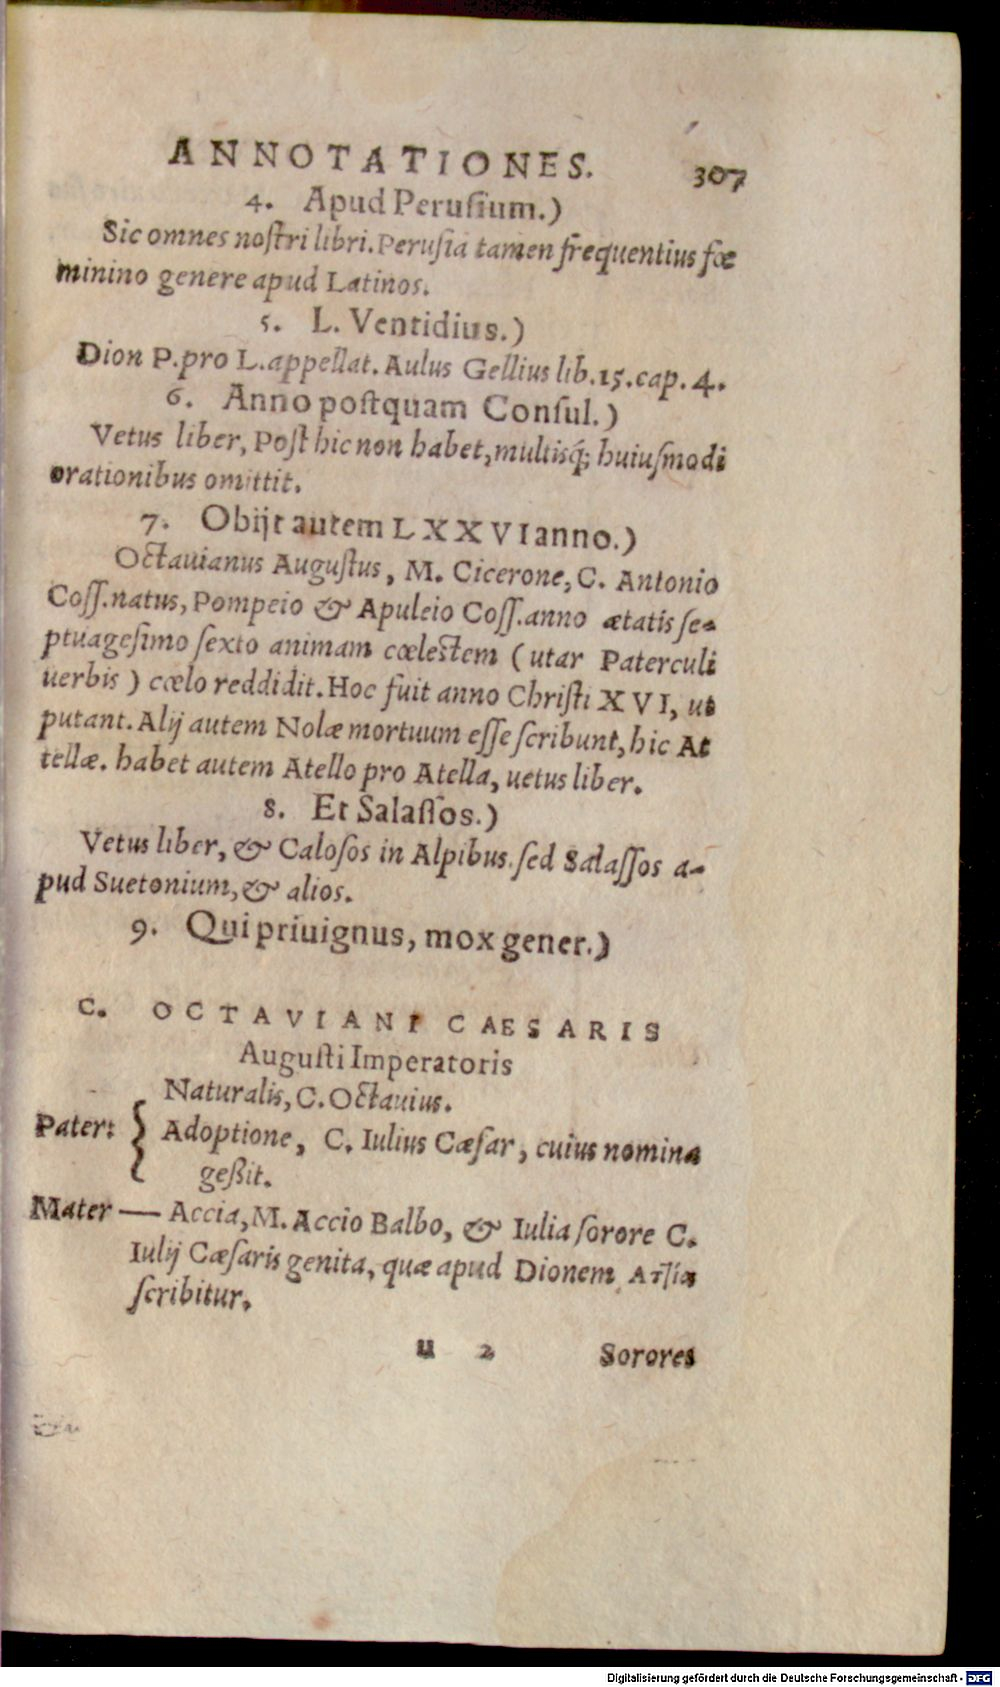 ANNOTATIONES. 307
4. Apud Peruſium.)
Sic omnes noſtri libri. Peruſia tamen frequentius fœ
minino genere apud Latinos.
5. L. Ventidius.)
Dion P. pro L. appellat. Aulus Gellius lib. 15. cap. 4.
6. Anno poſtquam Conſul.)
Vetus liber, Poſt hic non habet, multisq́; huiuſmodi
orationibus omittit.
7. Obijt autem LXXVI anno.)
Octauianus Auguſtus, M. Cicerone, C. Antonio
Coſſ. natus, Pompeio & Apuleio Coſſ. anno ætatis ſe-
ptuageſimo ſexto animam cœleſtem (utar Paterculi
uerbis) cœlo reddidit. Hoc fuit anno Chriſti XVI, ut
putant. Alij autem Nolæ mortuum eſſe ſcribunt, hic At
tellæ. habet autem Atello pro Atella, uetus liber.
8. Et Salaſſos.)
Vetus liber, & Caloſos in Alpibus. ſed Salaſſos a-
pud Suetonium, & alios.
9. Qui priuignus, mox gener.)
C. OCTAVIANI CAESARIS
Auguſti Imperatoris
Naturalis, C. Octauius.
Pater: { Adoptione, C. Iulius Cæſar, cuius nomina
geßit.
Mater — Accia, M. Accio Balbo, & Iulia ſorore C.
Iulij Cæſaris genita, quæ apud Dionem Ἀτία
ſcribitur.
u 2 Sorores
Digitalisierung gefördert durch die Deutsche Forschungsgemeinschaft - DFG